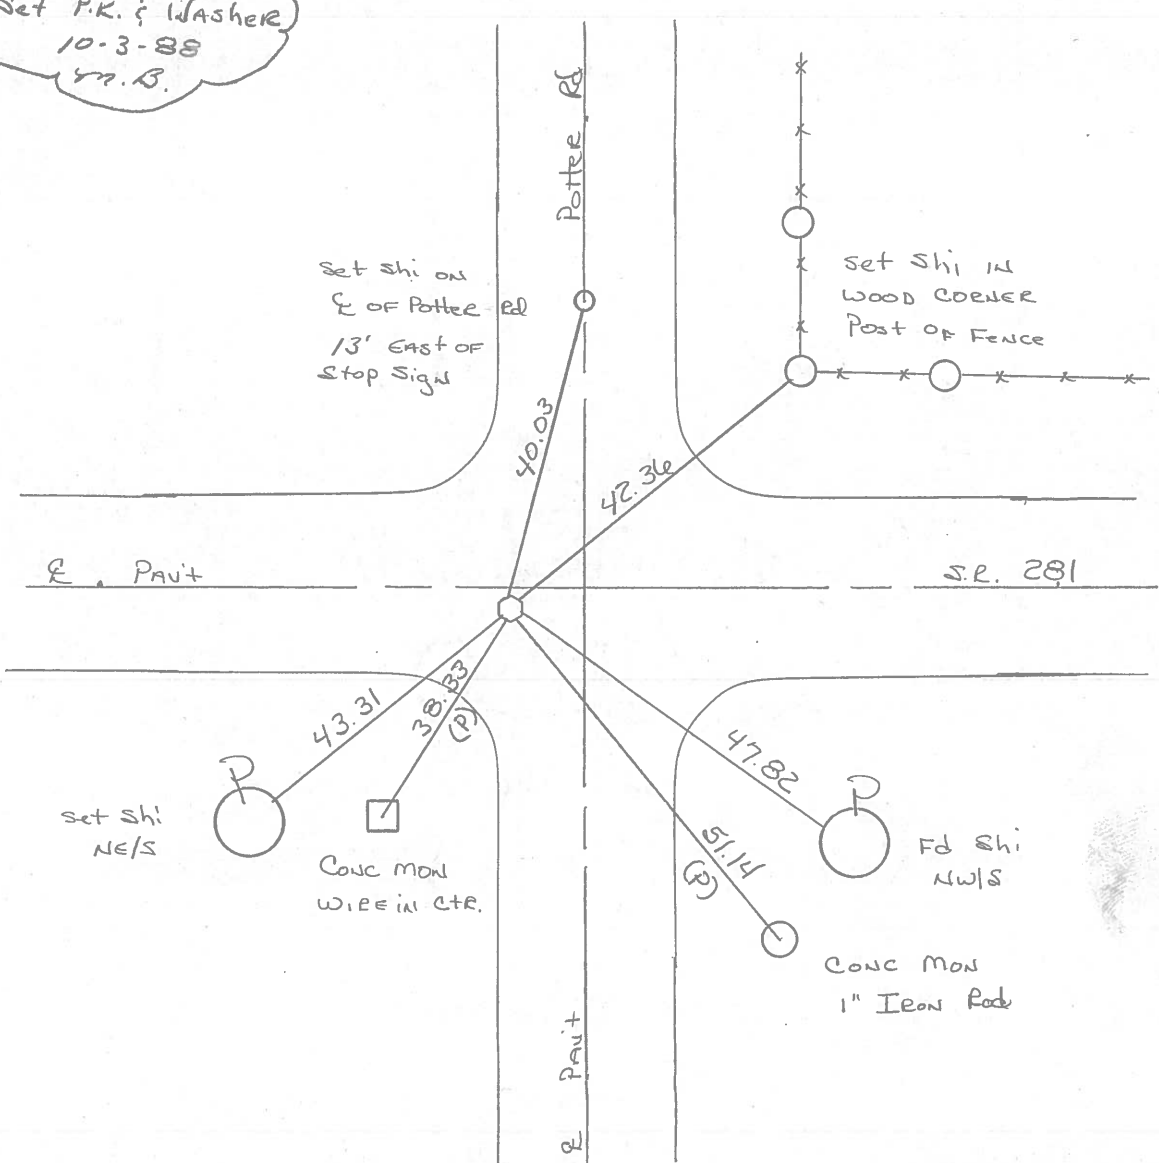 Set P.K. & WASHER
10-3-88
M.B.
Potter Rd
Set Shi ON
℄ OF Potter Rd
13' EAST OF
Stop Sign
Set Shi IN
WOOD CORNER
Post OF FENCE
40.03
42.36
℄ PAV't
S.R. 281
43.31
38.33
(P)
47.82
51.14
(P)
P
Set Shi
NE/S
CONC MON
WIRE IN CTR.
P
Fd Shi
NW/S
CONC MON
1" IRON Rod
℄ PAV't